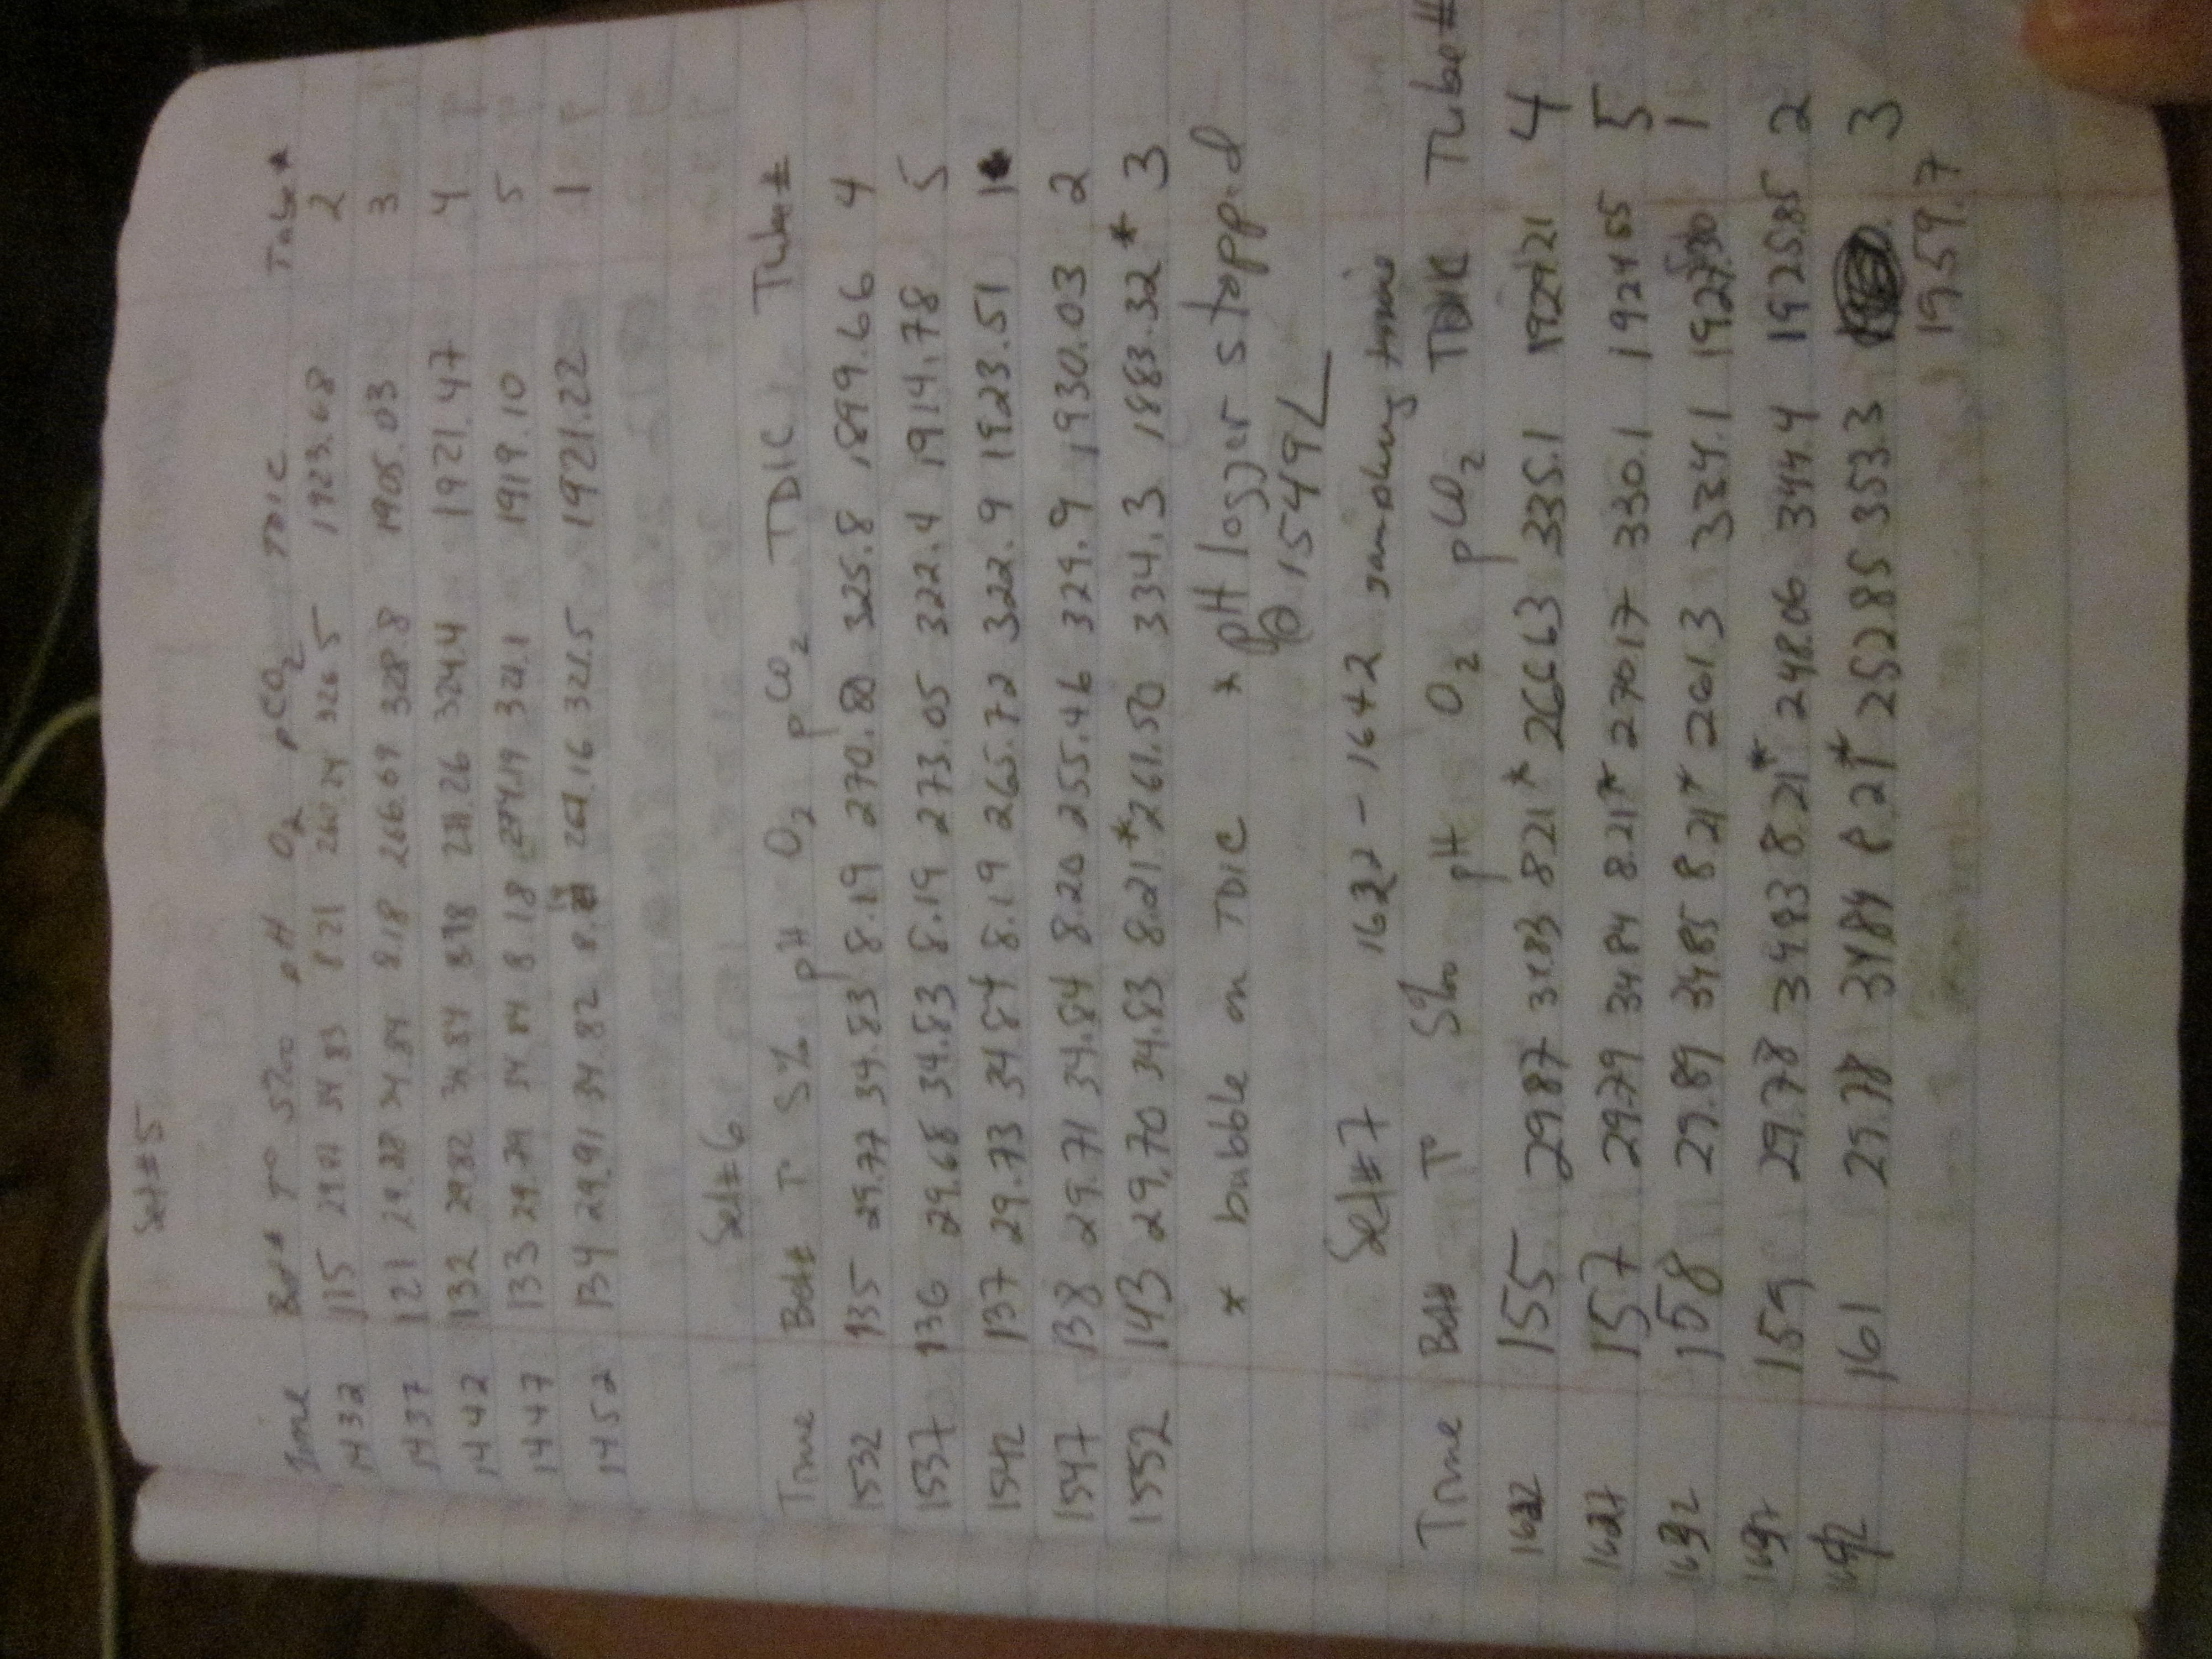 Set #5
Time Bot# T° S‰ pH O2 pCO2 TDIC Tube#
1432 115 29.81 34 83 8 21 260.24 326 5 1923.68 2
1437 121 29.88 34.84 8.18 266.69 328.8 1905.03 3
1442 132 29.82 34.84 8.18 271.26 324.4 1921.47 4
1447 133 29.79 34 84 8.18 274.19 321.1 1919.10 5
1452 134 29.91 34.82 8.19 267.16 321.5 1921.22 1
Set #6
Time Bot# T° S‰ pH O2 pCO2 TDIC Tube#
1532 135 29.77 34.83 8.19 270.80 325.8 1899.66 4
1537 136 29.68 34.83 8.19 273.05 322.4 1914.78 5
1542 137 29.73 34.84 8.19 265.72 322.9 1923.51 1
1547 138 29.71 34.84 8.20 255.46 329.9 1930.03 2
1552 143 29.70 34.83 8.21* 261.50 334.3 1883.32* 3
* bubble on TDIC * pH logger stopped
@ 1549L
Set #7 1622 - 1642 sampling time
Time Bot# T° S‰ pH O2 pCO2 TDIC Tube#
1622 155 29.87 34.83 8.21* 266.63 335.1 1924.21 4
1627 157 29.79 34 84 8.21* 270.17 330.1 1924 55 5
1632 158 29.89 34.85 8.21* 261.3 334.1 1927.30 1
1637 159 29.78 34.93 8.21* 248.06 344.4 1925.85 2
1642 161 29.78 34.84 8.21* 252.85 353.3 3
1959.7